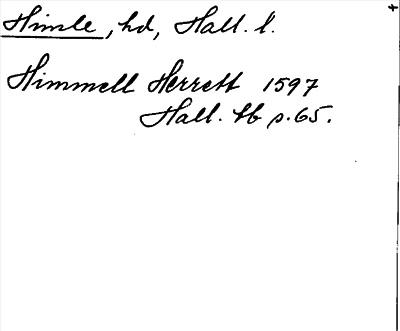 Himle, hd, Hall. l.
Himmell Herrett 1597
Hall. tb p.65.